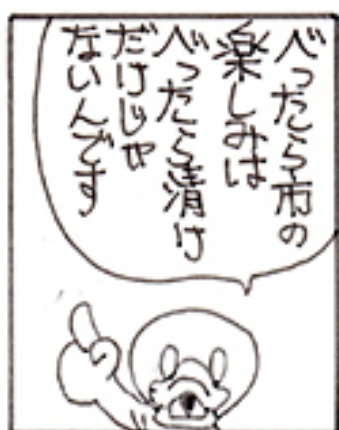 べったら市の
楽しみは
べったら漬け
だけじゃ
ないんです